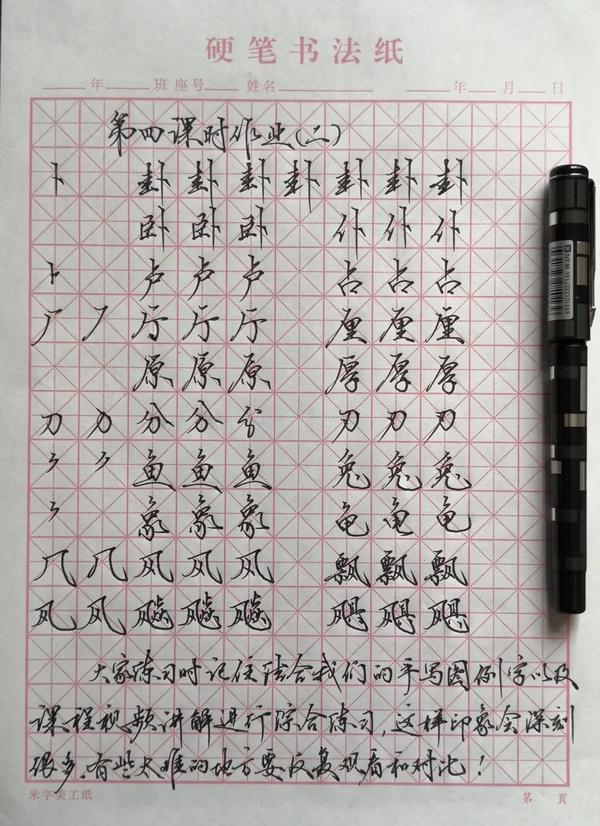 硬笔书法纸
年 班 座号 姓名 年 月 日
第四课时作业(二)
卜 卦 卦 卦 卦 卦 卦 卦
卧 卧 卧 仆 仆 仆
⺊ 卢 卢 卢 占 占 占
厂 厂 厅 厅 厅 厘 厘 厘
原 原 原 厚 厚 厚
刀 刀 分 分 分 刃 刃 刃
⺈ ⺈ 鱼 鱼 鱼 兔 兔 兔
⺈ 象 象 象 龟 龟 龟
几 几 风 风 风 飘 飘 飘
风 风 飚 飚 飚 飓 飓 飓
大家练习时记住结合我们的手写图例字以及
课程视频讲解进行综合练习,这样印象会深刻
很多,有些太难的地方要反复观看和对比!
米字美工纸 第 页